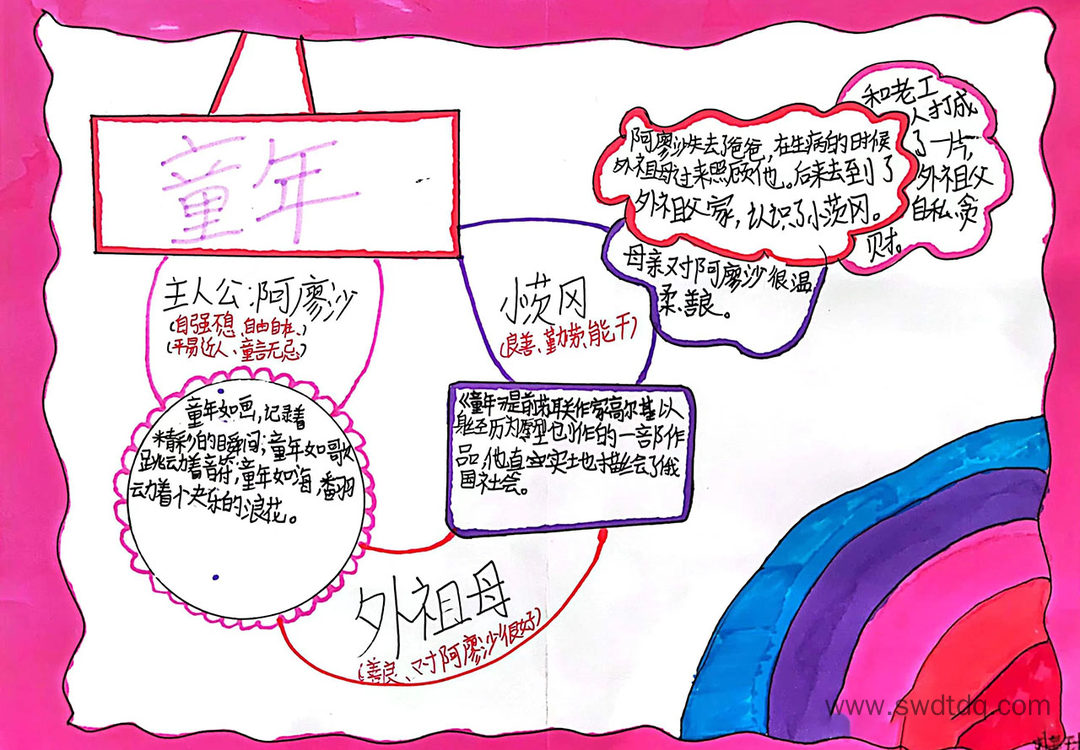 童年
主人公:阿廖沙
(自强不息、自由自在、)
(平易近人、童言无忌)
童年如画,记录着
精彩的瞬间;童年如歌
跳动着音符;童年如海,翻
动着快乐的浪花。
小茨冈
(良善、勤劳、能干)
《童年》是前苏联作家高尔基以
身经历为原型创作的一部作
品,他真实地描绘了俄
国社会。
外祖母
(善良、对阿廖沙很好)
阿廖沙失去了爸爸,在生病的时候
外祖母过来照顾他。后来去到了
外祖父家,认识了小茨冈。
母亲对阿廖沙很温
柔、善良。
和老工
人打成
了一片,
外祖父
自私、贪
财。
www.swdtdq.com